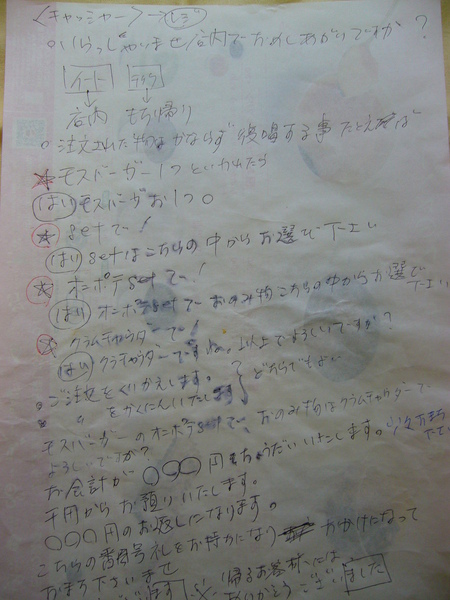 <キャッシャー>→レジ
○いらっしゃいませ店内でおめしあがりですか?
イート テイク
店内 もち帰り
○注文された物はかならず復唱する事 たとえば
★モスバーガー1つといわれたら
はい モスバーガーお1つ。
☆setで!
はい setはこちらの中からお選び下さい
☆オニポテsetで!
はい オニポテsetで おのみ物こちらの中からお選び下さい
☆クラムチャウダーで!
はい クラムチャウダーですね。以上でよろしいですか?
○ご注文をくりかえします。
○ 〃 をかくにんいたします
どちらでもよい
モスバーガーのオニポテsetで、おのみ物はクラムチャウダーで
よろしいですか?
お会計が 〇〇〇円 ちょうだいいたします。
千円からお預りいたします。
〇〇〇円のお返しになります。
こちらの番号札をお持ちになり おかけになって
おまち下さいませ
ます ※ 帰るお客様には
ありがとうございました